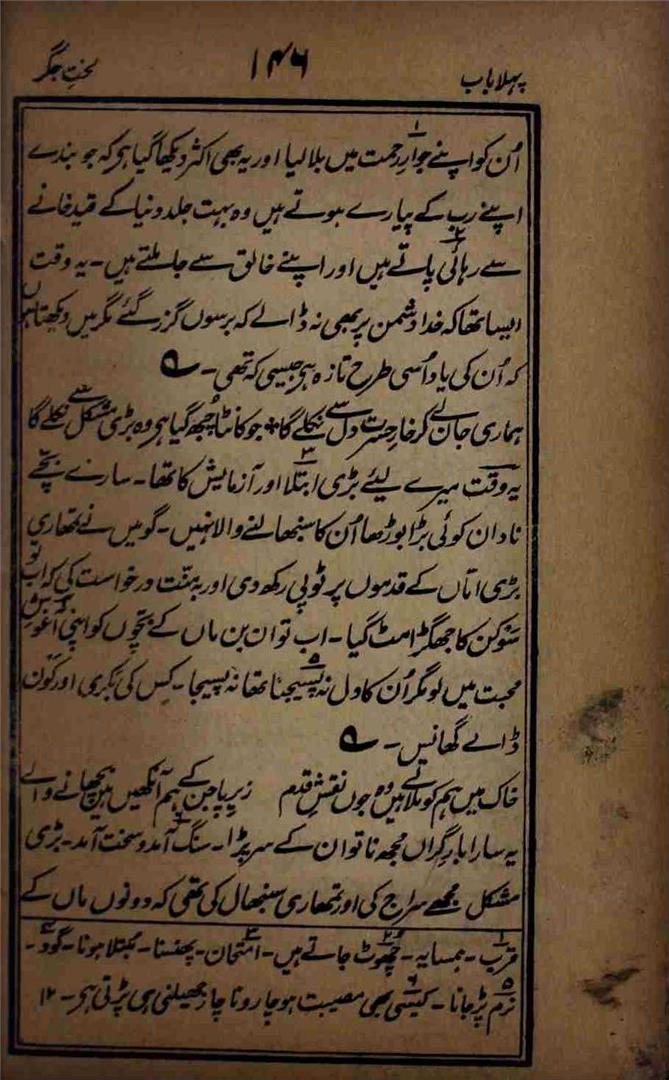 پہلا باب ۱۴۶ لختِ جگر
اُن کو اپنے جوارِ رحمت میں بلا لیا اور یہ بھی اکثر دیکھا گیا ہر کہ جو بندے
اپنے رب کے پیارے ہوتے ہیں وہ بہت جلد دنیا کے قید خانے
سے رہائی پاتے ہیں اور اپنے خالق سے جا ملتے ہیں۔ یہ وقت
ایسا تھا کہ خدا دشمن پر بھی نہ ڈالے کہ برسوں گزر گئے مگر میں دیکھتا ہوں
کہ اُن کی یاد اُسی طرح تازہ ہر جیسی کہ تھی۔ ؎
ہماری جان لے کر خارِ حسرت دل سے نکلے گا * جو کانٹا چُبھ گیا ہر وہ بڑی مشکل سے نکلے گا
یہ وقت میرے لیئے بڑی ابتلا اور آزمایش کا تھا۔ سارے بچے
نادان کوئی بڑا بوڑھا اُن کا سنبھالنے والا نہیں۔ گو میں نے تمھاری
بڑی امّاں کے قدموں پر ٹوپی رکھ دی اور بہ منّت درخواست کی کہ اب تو
سَوکن کا جھگڑا مٹ گیا۔ اب تو ان بن ماں کے بچّوں کو اپنی آغوش
محبت میں لو مگر اُن کا دل نہ پسیجنا تھا نہ پسیجا۔ کِس کی بکری اور کون
ڈالے گھانس۔ ؎
خاک میں ہم کو ملاتے ہیں وہ جوں نقشِ قدم زیرِ پا جن کے ہم آنکھیں ہیں بچھانے والے
یہ سارا بارِ گراں مجھ ناتوان کے سر پڑا۔ سنگ آمد و سخت آمد۔ بڑی
مشکل مجھے سراج کی اور تمھاری سنبھال کی تھی کہ دونوں ماں کے
۱ قرب۔ ہمسایہ۔ ۲ چھُوٹ جاتے ہیں۔ ۳ امتحان۔ پھنسنا۔ مبتلا ہونا۔ ۴ گود۔
۵ نرم پڑ جانا۔ ۶ کیسی بھی مصیبت ہو چار و ناچار جھیلنی ہی پڑتی ہر۔ ۱۲